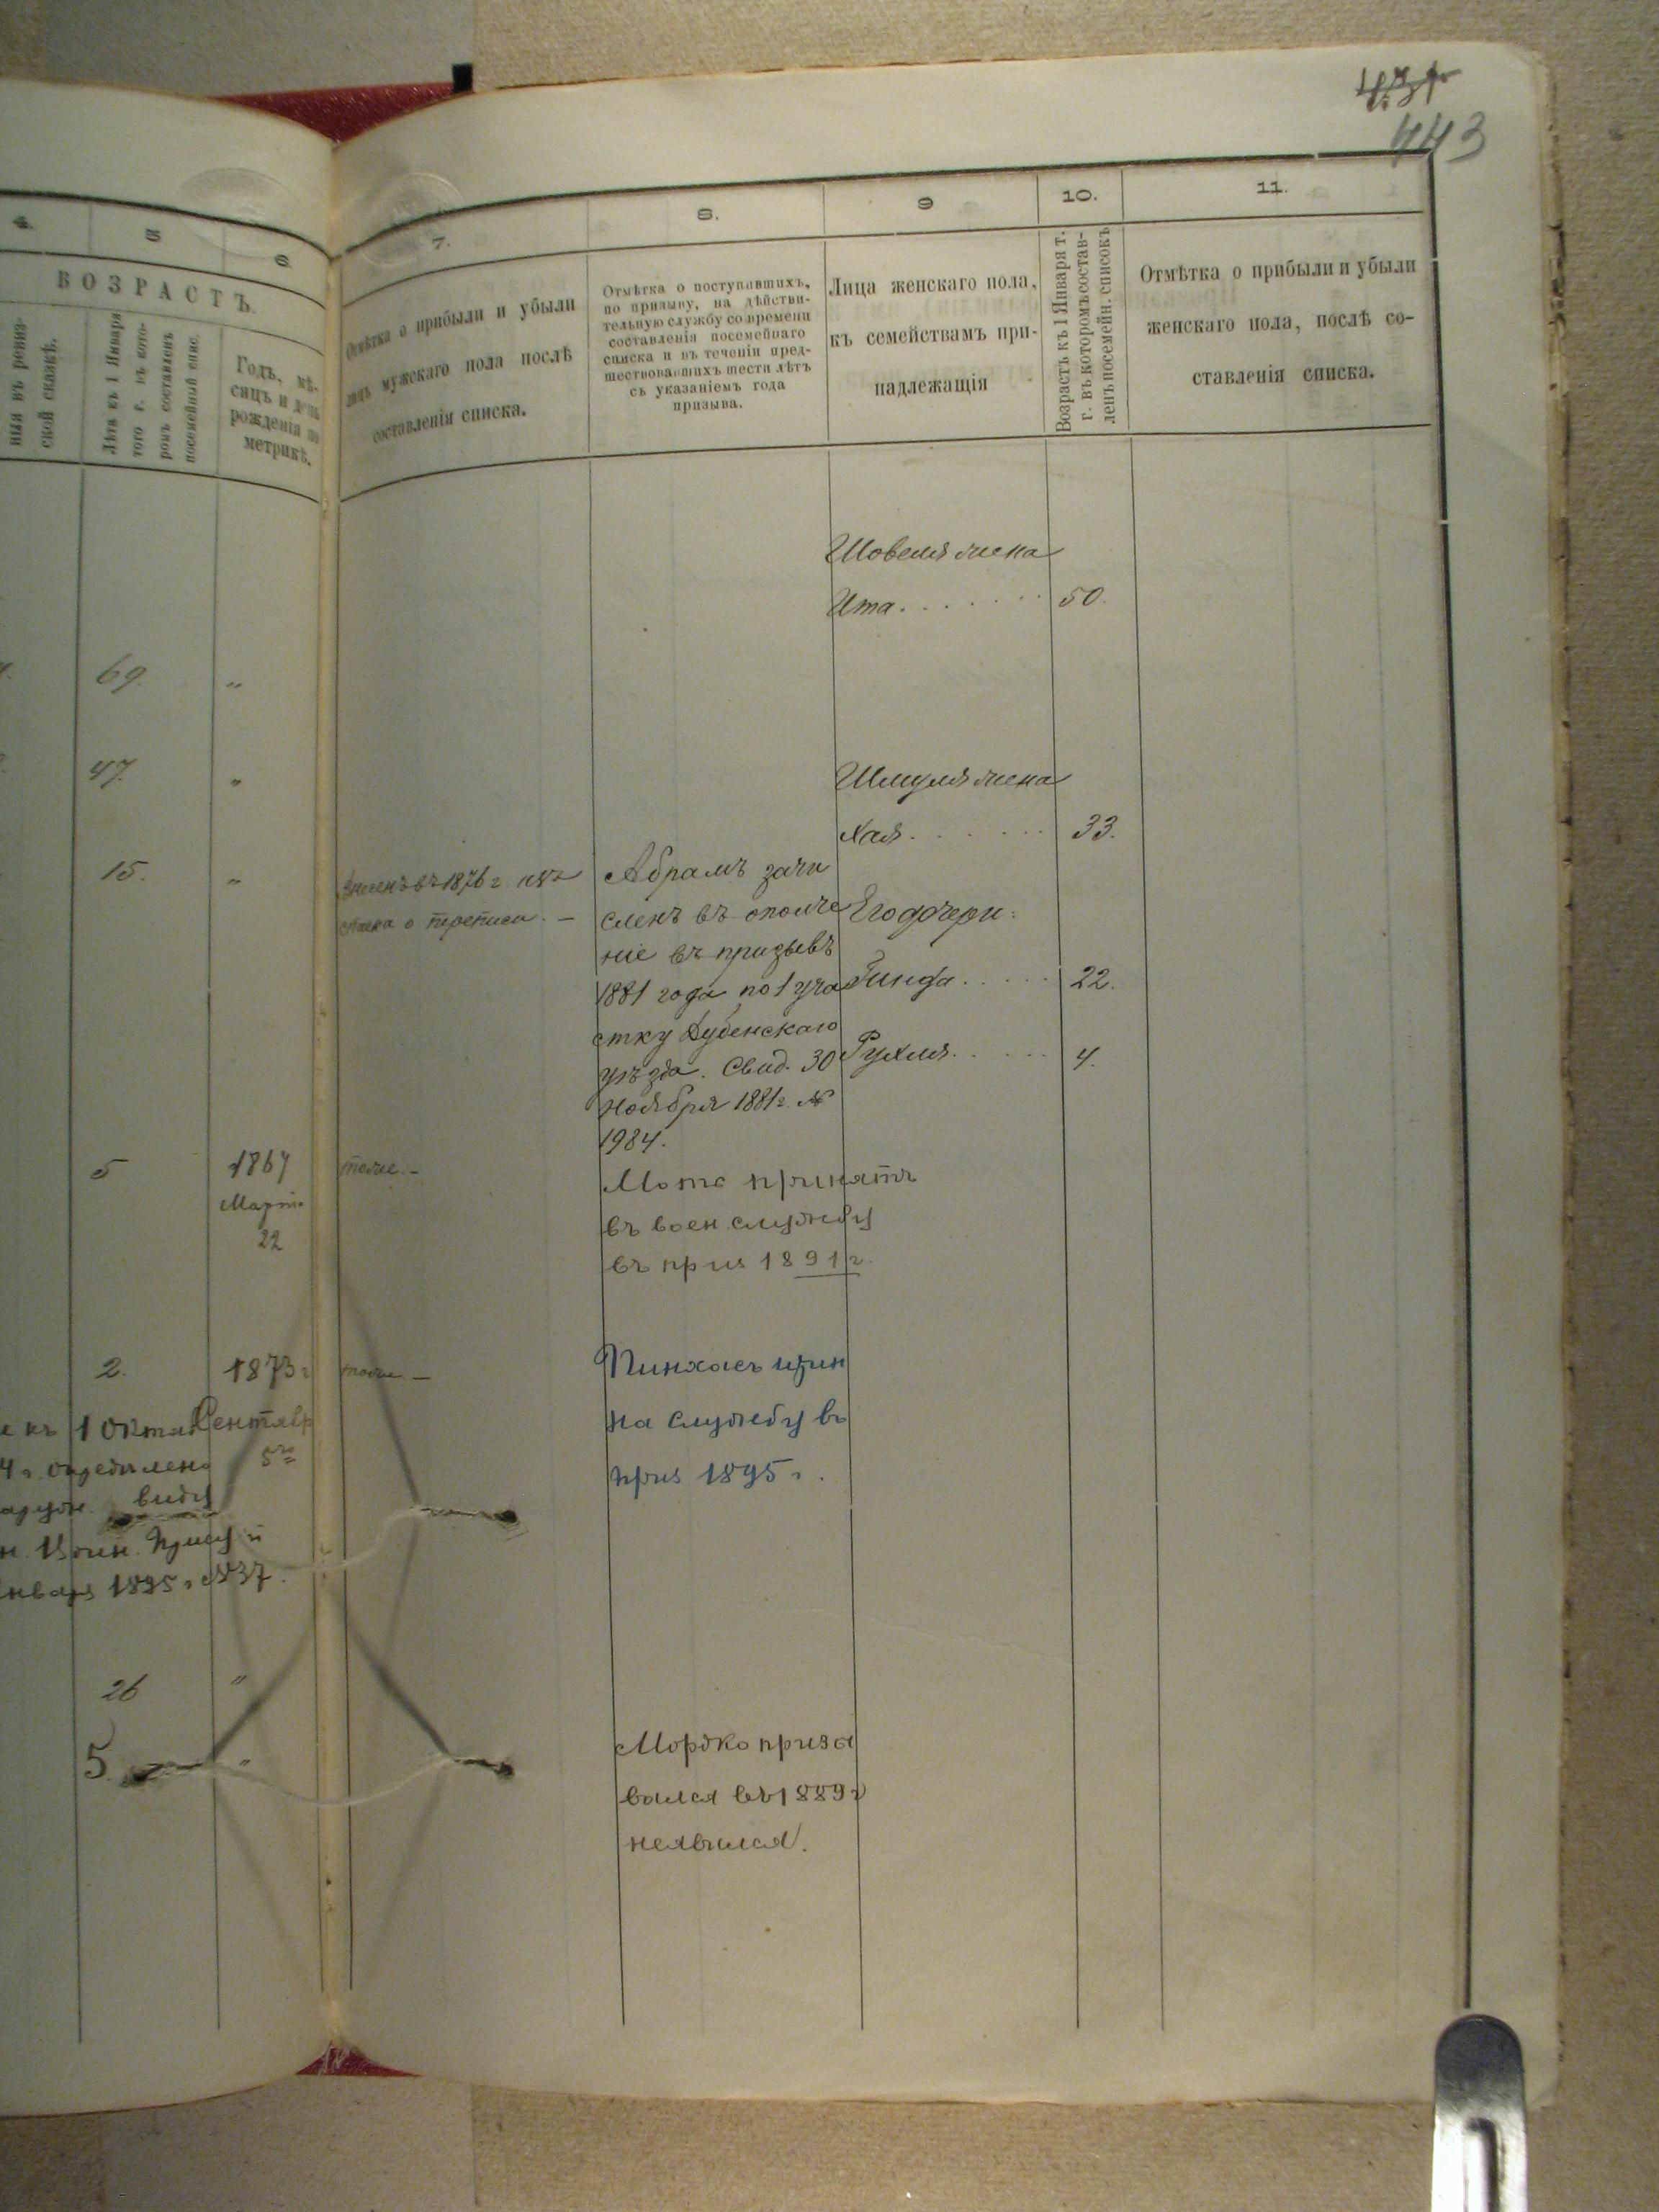 431
443
4.
5
6
7.
8.
9
10.
11.
ВОЗРАСТЪ.
ныя въ ревиз-
ской сказкѣ.
Лѣта къ 1 Января
того г. въ кото-
ромъ составленъ
посемейный спис.
Годъ, мѣ-
сяцъ и день
рожденія по
метрикѣ.
Отмѣтка о прибыли и убыли
лицъ мужскаго пола послѣ
составленія списка.
Отмѣтка о поступавшихъ,
по призыву, на дѣйстви-
тельную службу со времени
составленія посемейнаго
списка и въ теченіи пред-
шествовавшихъ шести лѣтъ
съ указаніемъ года
призыва.
Лица женскаго пола,
къ семействамъ при-
надлежащія
Возрастъ къ 1 Января т.
г. въ которомъ состав-
ленъ посемейн. списокъ
Отмѣтка о прибыли и убыли
женскаго пола, послѣ со-
ставленія списка.
Шовеля жена
Ита . . . . . . . 50.
69. "
47. "
Шмуля жена
Хая . . . . . . 33.
15. "
въ 1876 г.
о переписи. —
Абрамъ зачи
сленъ въ ополче
ніе въ призывъ
1881 года по 1 уча
стку Дубенскаго
уѣзда. Свид. 30
Ноября 1881 г. №
1984.
Его дочери:
Гинда . . . . . 22.
Рухля . . . . . 4.
5 1867
Марта
22
тоже. —
Мотя принятъ
въ воен. службу
въ приз 1891 г.
2. 1873 г
Сентябр
5го
тоже —
Пинхасъ прин
на службу въ
приз 1895 г.
къ 1 Октяб
4 г. опредѣлено
виду
Воин. Прису
января 1895 г. № 37.
26 "
5. "
Мордко призы
вался въ 1889 г
не явился.